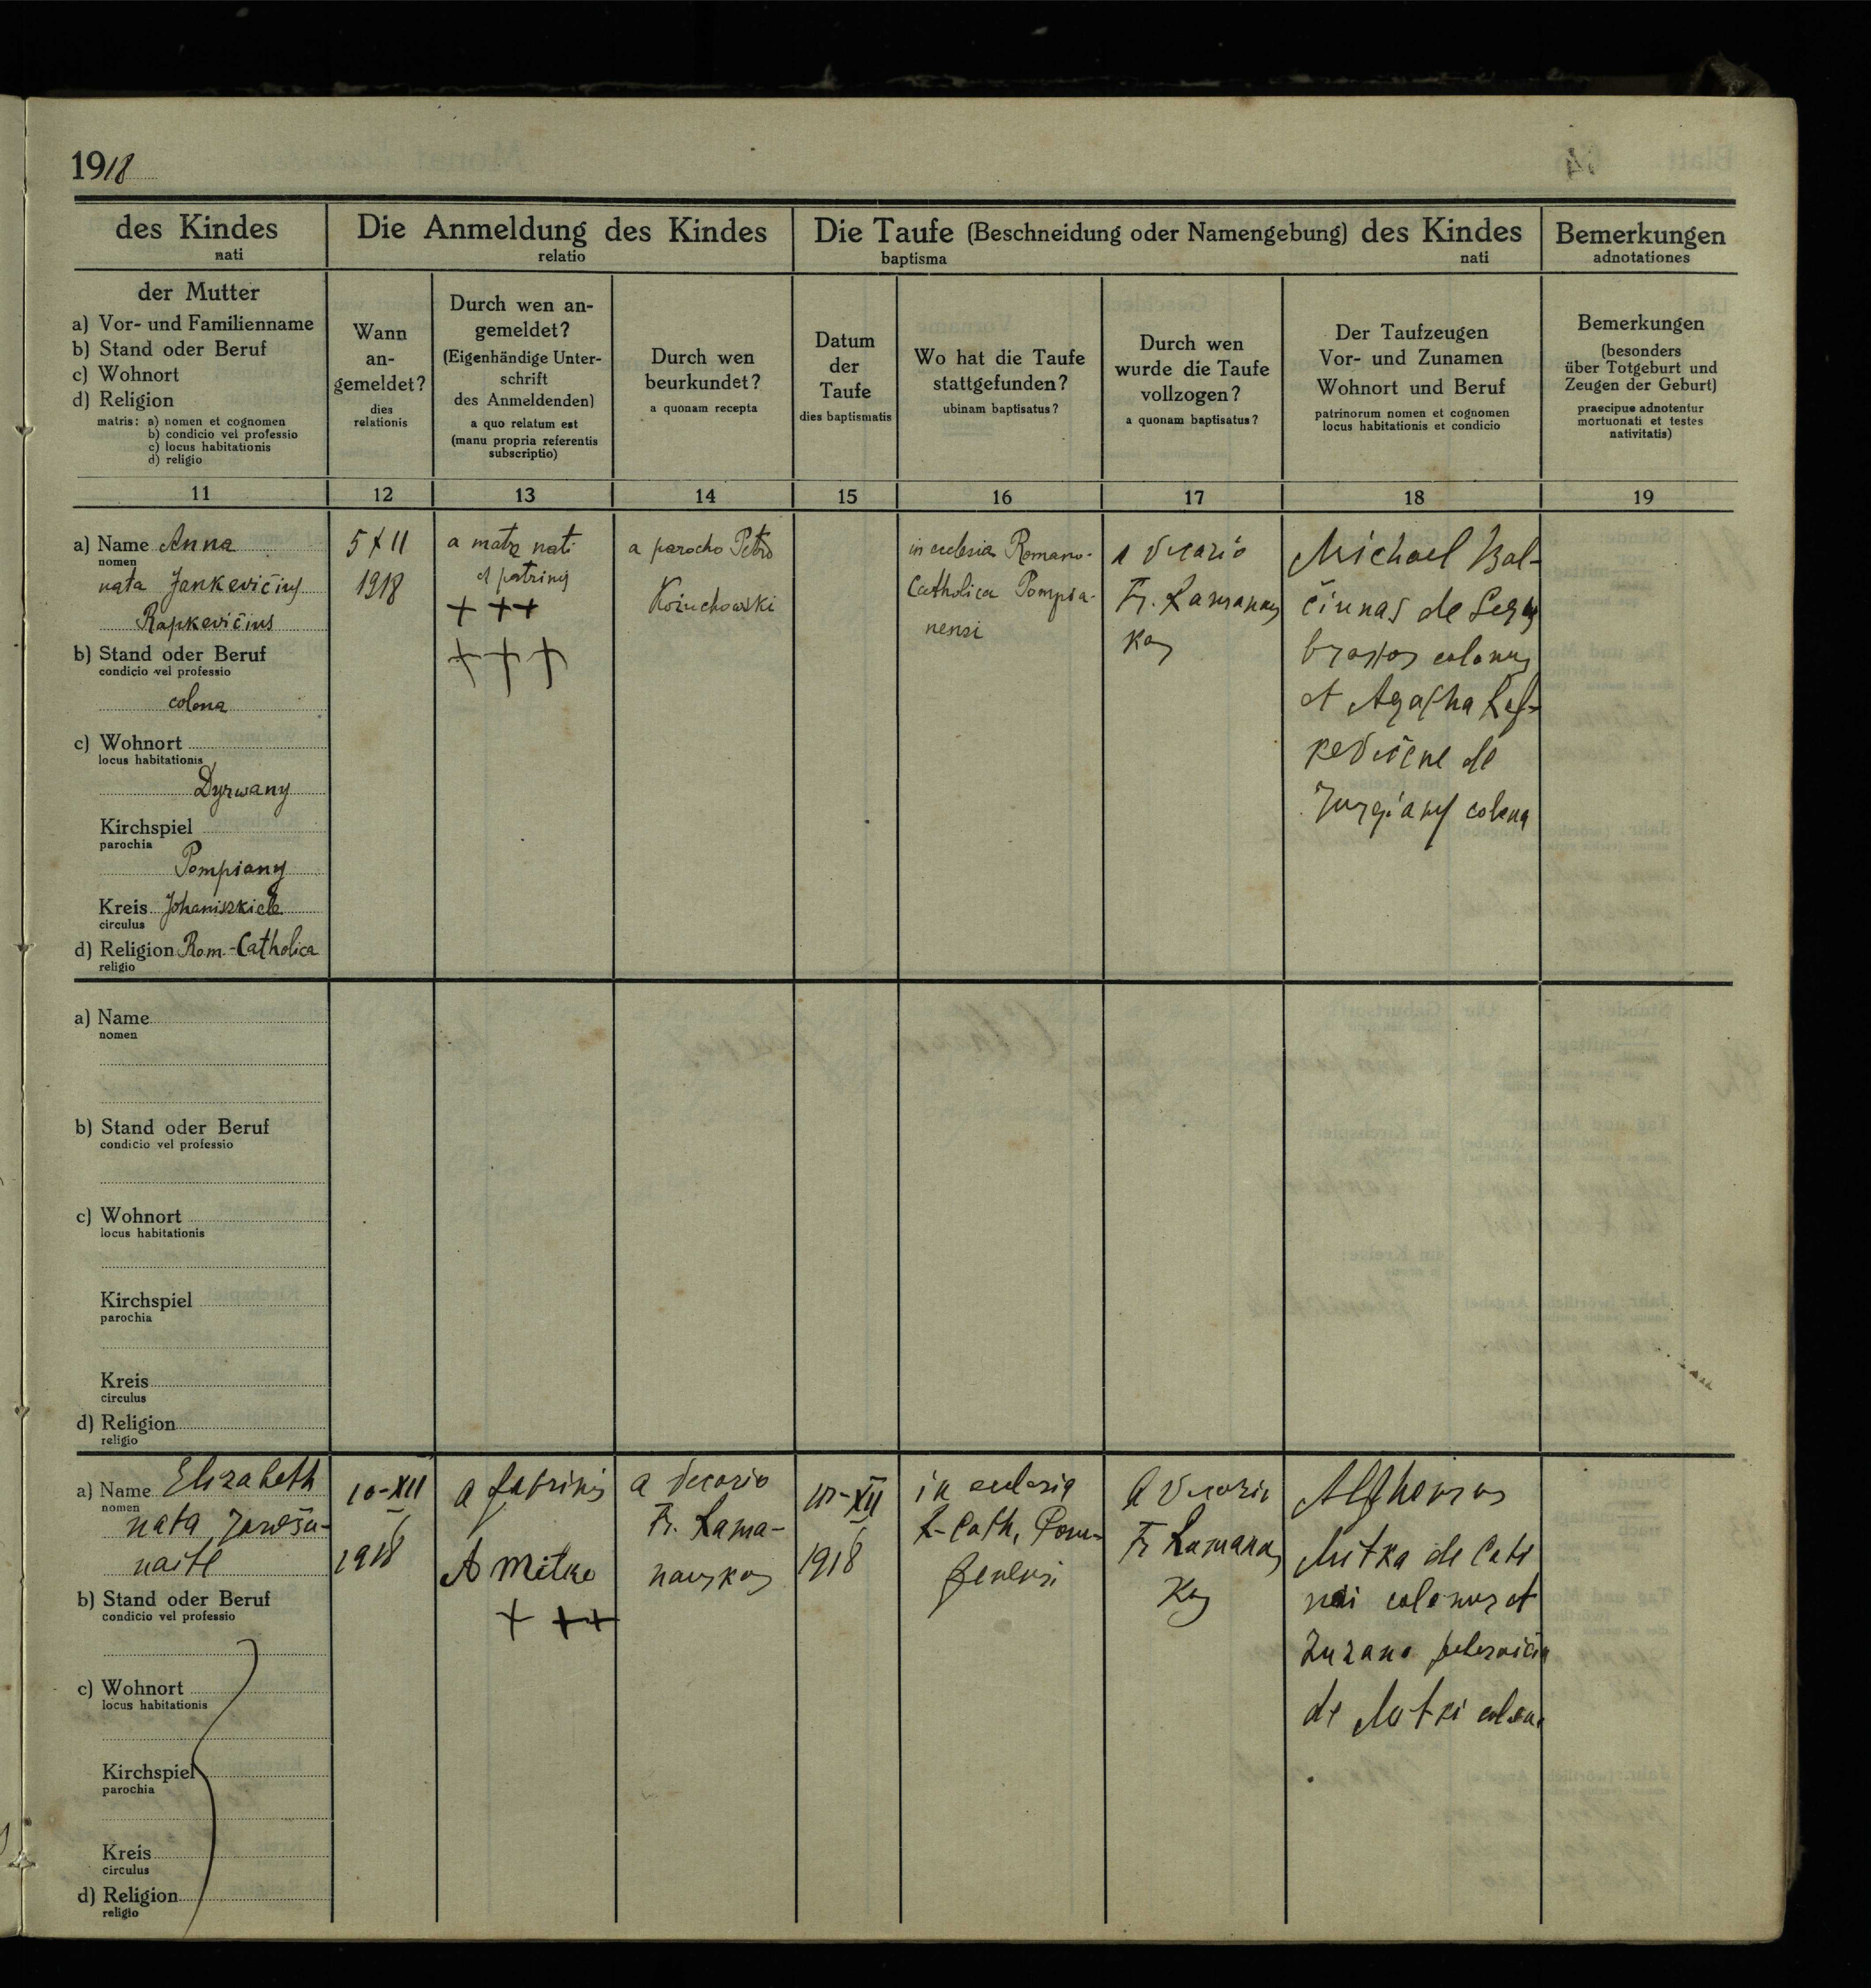 1918
des Kindes
nati
Die Anmeldung des Kindes
relatio
Die Taufe (Beschneidung oder Namengebung) des Kindes
baptisma nati
Bemerkungen
adnotationes
der Mutter
a) Vor- und Familienname
b) Stand oder Beruf
c) Wohnort
d) Religion
matris: a) nomen et cognomen
b) condicio vel professio
c) locus habitationis
d) religio
Wann
an-
gemeldet?
dies
relationis
Durch wen an-
gemeldet?
(Eigenhändige Unter-
schrift
des Anmeldenden)
a quo relatum est
(manu propria referentis
subscriptio)
Durch wen
beurkundet?
a quonam recepta
Datum
der
Taufe
dies baptismatis
Wo hat die Taufe
stattgefunden?
ubinam baptisatus?
Durch wen
wurde die Taufe
vollzogen?
a quonam baptisatus?
Der Taufzeugen
Vor- und Zunamen
Wohnort und Beruf
patrinorum nomen et cognomen
locus habitationis et condicio
Bemerkungen
(besonders
über Totgeburt und
Zeugen der Geburt)
praecipue adnotentur
mortuonati et testes
nativitatis)
11 12 13 14 15 16 17 18 19
a) Name Anna
nomen
nata Jankevičius
Rapkevičius
b) Stand oder Beruf
condicio vel professio
colona
c) Wohnort
locus habitationis
Dyrwany
Kirchspiel
parochia
Pompiany
Kreis Johaniszkiele
circulus
d) Religion Rom.-Catholica
religio
5 XII
1918
a matre nati
et patrinis
+ + +
+ + +
a parocho Petro
Koziuchowski
in ecclesia Romano-
Catholica Pompia-
nensi
a Vicario
Fr. Ramanaus
kas
Michael Bal-
čiunas de
colonus
et Agatha
de
colona
a) Name
nomen
b) Stand oder Beruf
condicio vel professio
c) Wohnort
locus habitationis
Kirchspiel
parochia
Kreis
circulus
d) Religion
religio
a) Name Elizabeth
nomen
nata Jarošu-
naite
b) Stand oder Beruf
condicio vel professio
c) Wohnort
locus habitationis
Kirchspiel
parochia
Kreis
circulus
d) Religion
religio
10-XII
1918
a patrinis
A Mitka
+ + +
a Vicario
Fr. Rama-
nauskas
10-XII
1918
in ecclesia
R-Cath. Pom-
a Vicario
Fr Ramanaus
kas
Mitka de
colonus et
Zuzana
de colona